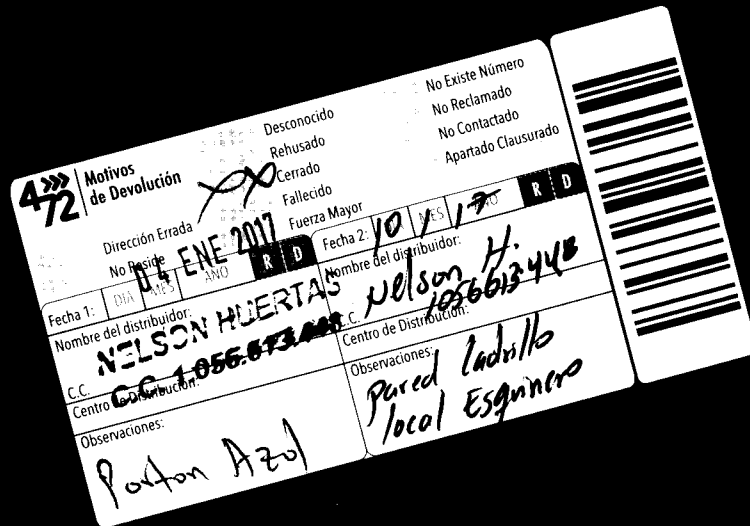 472
Motivos
de Devolución
Desconocido
Rehusado
Cerrado
Fallecido
Fuerza Mayor
No Existe Número
No Reclamado
No Contactado
Apartado Clausurado
Dirección Errada
No Reside
Fecha 1: DIA MES AÑO R D
04 ENE 2017
Fecha 2: 10 / MES / 17 R D
Nombre del distribuidor:
NELSON HUERTAS
C.C. C.C. 1.056.613.448
Centro de Distribución:
Observaciones:
Porton Azol
Nombre del distribuidor:
Nelson H.
C.C. 1056613448
Centro de Distribución:
Observaciones:
pared ladrillo
local Esquinero